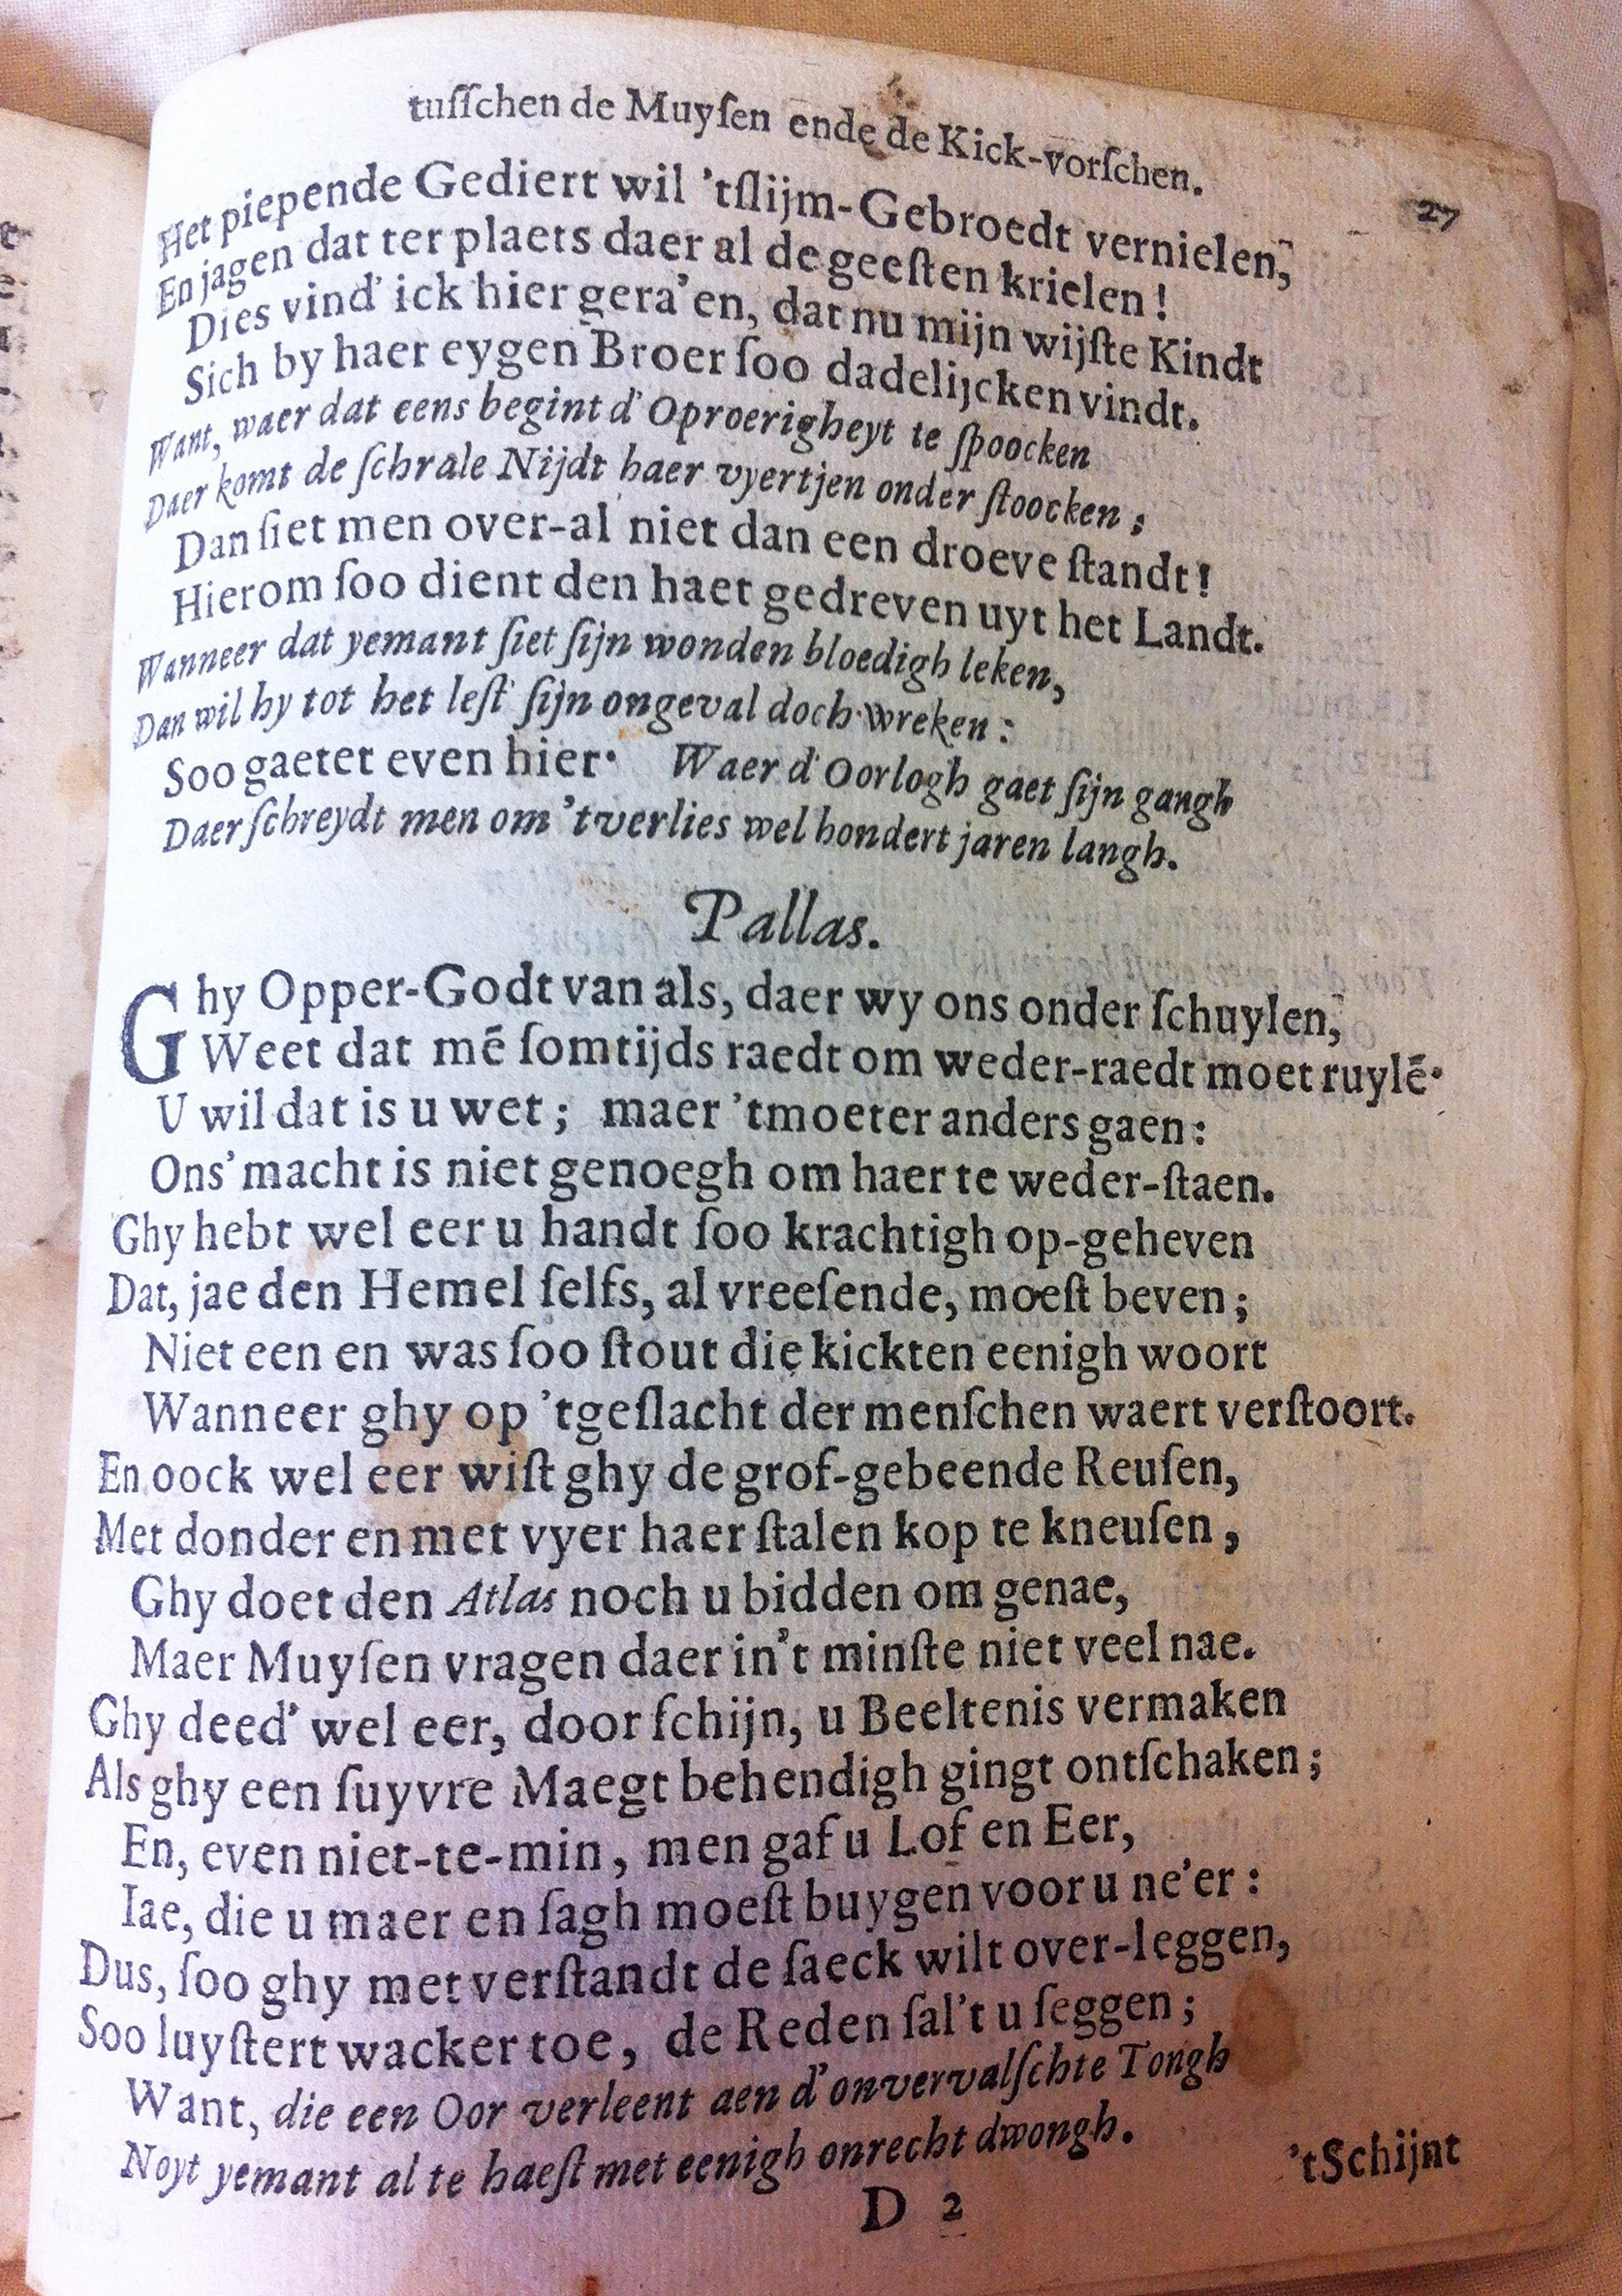 tuſſchen de Muyſen ende de Kick-vorſchen.
27
Het piepende Gediert wil 'tſlijm-Gebroedt vernielen,
En jagen dat ter plaets daer al de geeſten krielen!
Dies vind' ick hier gera'en, dat nu mijn wijſte Kindt
Sich by haer eygen Broer ſoo dadelijcken vindt.
Want, waer dat eens begint d'Oproerigheyt te ſpoocken
Daer komt de ſchrale Nijdt haer vyertjen onder ſtoocken;
Dan ſiet men over-al niet dan een droeve ſtandt!
Hierom ſoo dient den haet gedreven uyt het Landt.
Wanneer dat yemant ſiet ſijn wonden bloedigh leken,
Dan wil hy tot het leſt' ſijn ongeval doch wreken:
Soo gaetet even hier. Waer d'Oorlogh gaet ſijn gangh
Daer ſchreydt men om 'tverlies wel hondert jaren langh.
Pallas.
Ghy Opper-Godt van als, daer wy ons onder ſchuylen,
Weet dat mē ſomtijds raedt om weder-raedt moet ruylē.
U wil dat is u wet; maer 'tmoeter anders gaen:
Ons' macht is niet genoegh om haer te weder-ſtaen.
Ghy hebt wel eer u handt ſoo krachtigh op-geheven
Dat, jae den Hemel ſelfs, al vreeſende, moeſt beven;
Niet een en was ſoo ſtout die kickten eenigh woort
Wanneer ghy op 'tgeſlacht der menſchen waert verſtoort.
En oock wel eer wiſt ghy de grof-gebeende Reuſen,
Met donder en met vyer haer ſtalen kop te kneuſen,
Ghy doet den Atlas noch u bidden om genae,
Maer Muyſen vragen daer in't minſte niet veel nae.
Ghy deed' wel eer, door ſchijn, u Beeltenis vermaken
Als ghy een ſuyvre Maegt behendigh gingt ontſchaken;
En, even niet-te-min, men gaf u Lof en Eer,
Iae, die u maer en ſagh moeſt buygen voor u ne'er:
Dus, ſoo ghy met verſtandt de ſaeck wilt over-leggen,
Soo luyſtert wacker toe, de Reden ſal't u ſeggen;
Want, die een Oor verleent aen d'onvervalſchte Tongh
Noyt yemant al te haeſt met eenigh onrecht dwongh.
D 2
'tSchijnt